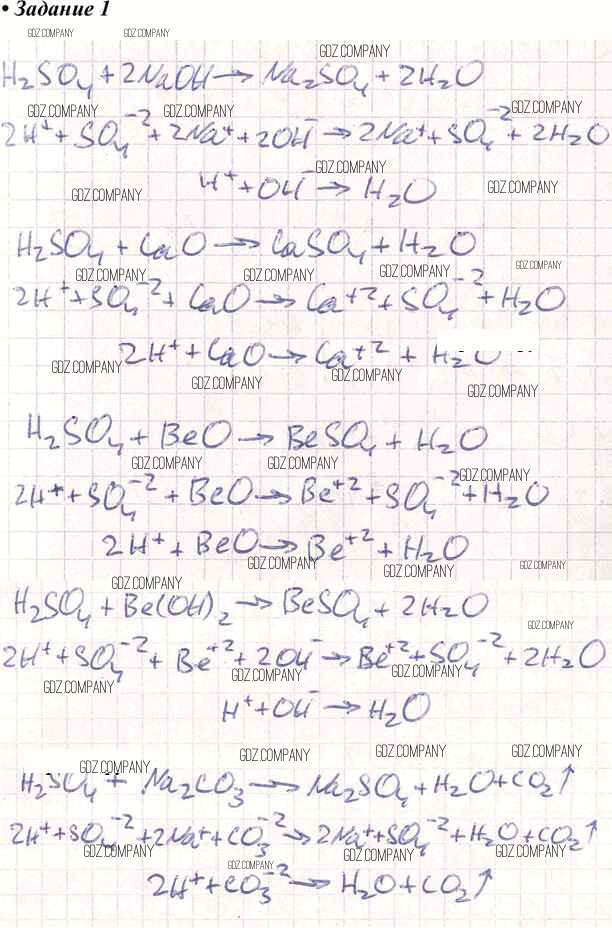 • Задание 1
GDZ.COMPANY GDZ.COMPANY
GDZ.COMPANY
H₂SO₄ + 2NaOH → Na₂SO₄ + 2H₂O
GDZ.COMPANY GDZ.COMPANY GDZ.COMPANY
2H⁺ + SO₄⁻² + 2Na⁺ + 2OH⁻ → 2Na⁺ + SO₄⁻² + 2H₂O
GDZ.COMPANY GDZ.COMPANY GDZ.COMPANY
H⁺ + OH⁻ → H₂O
H₂SO₄ + CaO → CaSO₄ + H₂O
GDZ.COMPANY GDZ.COMPANY GDZ.COMPANY GDZ.COMPANY
2H⁺ + SO₄⁻² + CaO → Ca⁺² + SO₄⁻² + H₂O
2H⁺ + CaO → Ca⁺² + H₂O
GDZ.COMPANY GDZ.COMPANY GDZ.COMPANY GDZ.COMPANY
H₂SO₄ + BeO → BeSO₄ + H₂O
GDZ.COMPANY GDZ.COMPANY GDZ.COMPANY
2H⁺ + SO₄⁻² + BeO → Be⁺² + SO₄⁻² + H₂O
2H⁺ + BeO → Be⁺² + H₂O
GDZ.COMPANY GDZ.COMPANY GDZ.COMPANY GDZ.COMPANY
H₂SO₄ + Be(OH)₂ → BeSO₄ + 2H₂O
GDZ.COMPANY
2H⁺ + SO₄⁻² + Be⁺² + 2OH⁻ → Be⁺² + SO₄⁻² + 2H₂O
GDZ.COMPANY GDZ.COMPANY GDZ.COMPANY
H⁺ + OH⁻ → H₂O
GDZ.COMPANY GDZ.COMPANY GDZ.COMPANY GDZ.COMPANY
H₂SO₄ + Na₂CO₃ → Na₂SO₄ + H₂O + CO₂↑
2H⁺ + SO₄⁻² + 2Na⁺ + CO₃⁻² → 2Na⁺ + SO₄⁻² + H₂O + CO₂↑
GDZ.COMPANY GDZ.COMPANY GDZ.COMPANY GDZ.COMPANY
2H⁺ + CO₃⁻² → H₂O + CO₂↑